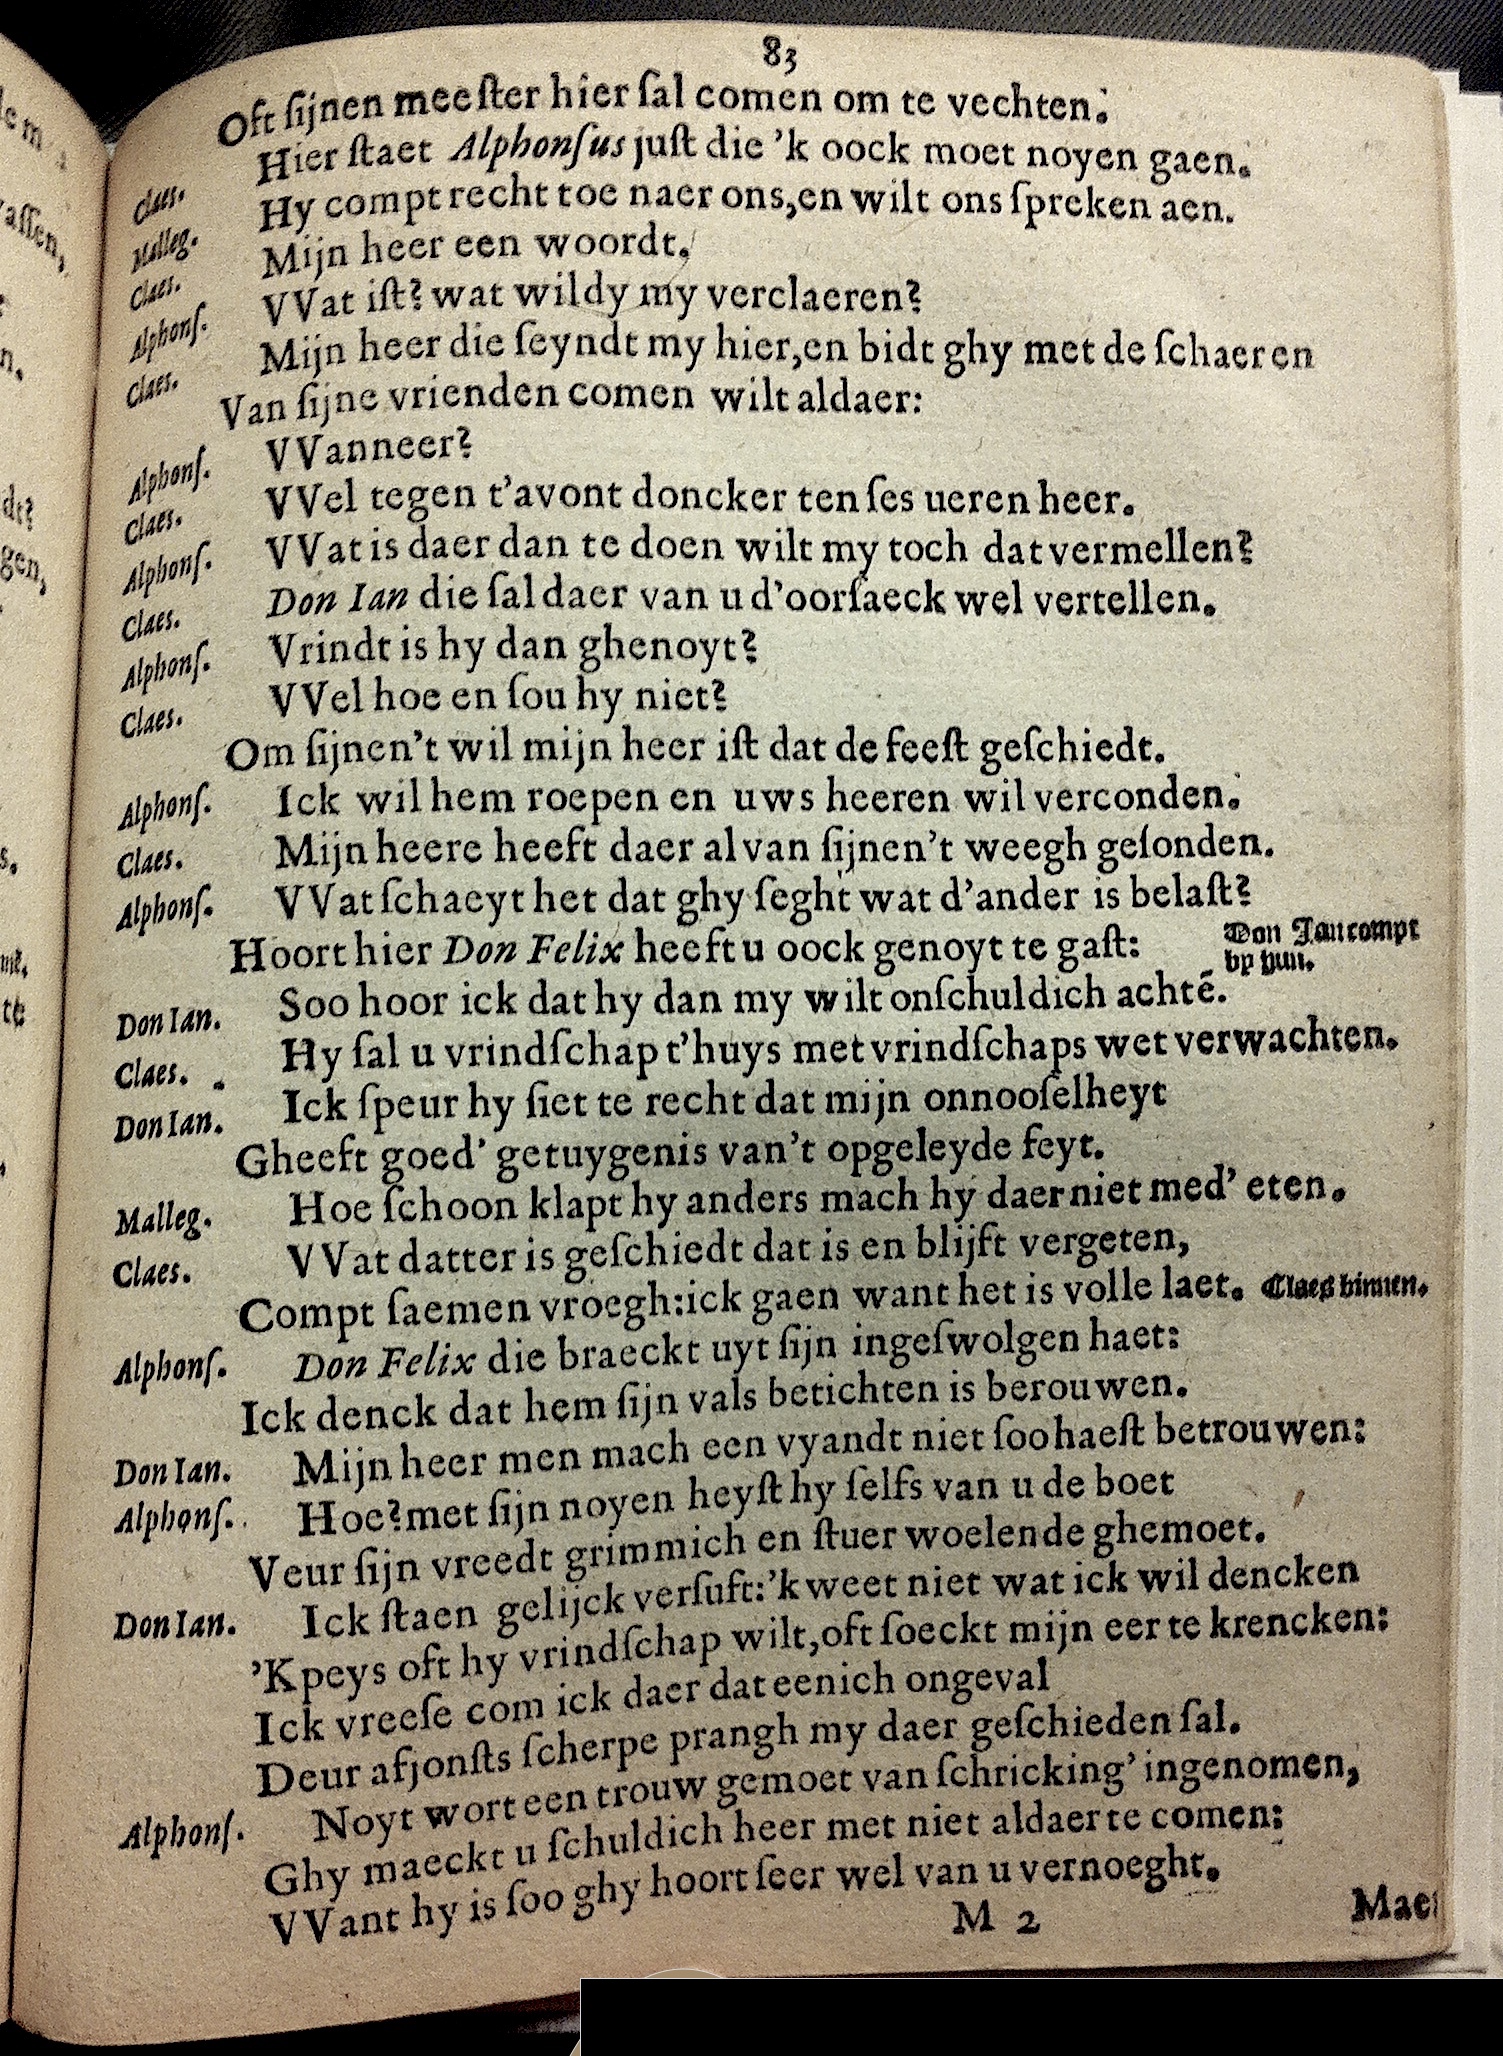 83
Oft ſijnen meeſter hier ſal comen om te vechten.
Claes. Hier ſtaet Alphonſus juſt die 'k oock moet noyen gaen.
Malleg. Hy compt recht toe naer ons,en wilt ons ſpreken aen.
Claes. Mijn heer een woordt.
Alphonſ. VVat iſt? wat wildy my verclaeren?
Claes. Mijn heer die ſeyndt my hier,en bidt ghy met de ſchaeren
Van ſijne vrienden comen wilt aldaer:
Alphonſ. VVanneer?
Claes. VVel tegen t'avont doncker ten ſes ueren heer.
Alphonſ. VVat is daer dan te doen wilt my toch dat vermellen?
Claes. Don Ian die ſal daer van u d'oorſaeck wel vertellen.
Alphonſ. Vrindt is hy dan ghenoyt?
Claes. VVel hoe en ſou hy niet?
Om ſijnen't wil mijn heer iſt dat de feeſt geſchiedt.
Alphonſ. Ick wil hem roepen en uws heeren wil verconden.
Claes. Mijn heere heeft daer al van ſijnen't weegh geſonden.
Alphonſ. VVat ſchaeyt het dat ghy ſeght wat d'ander is belaſt?
Hoort hier Don Felix heeft u oock genoyt te gaſt: Don Jan compt
by hun.
Don Ian. Soo hoor ick dat hy dan my wilt onſchuldich achtē.
Claes. Hy ſal u vrindſchap t'huys met vrindſchaps wet verwachten.
Don Ian. Ick ſpeur hy ſiet te recht dat mijn onnooſelheyt
Gheeft goed' getuygenis van't opgeleyde feyt.
Malleg. Hoe ſchoon klapt hy anders mach hy daer niet med' eten.
Claes. VVat datter is geſchiedt dat is en blijft vergeten,
Compt ſaemen vroegh:ick gaen want het is volle laet. Claes binnen.
Alphonſ. Don Felix die braeckt uyt ſijn ingeſwolgen haet:
Ick denck dat hem ſijn vals betichten is berouwen.
Don Ian. Mijn heer men mach een vyandt niet ſoo haeſt betrouwen:
Alphonſ. Hoe?met ſijn noyen heyſt hy ſelfs van u de boet
Veur ſijn vreedt grimmich en ſtuer woelende ghemoet.
Don Ian. Ick ſtaen gelijck verſuft:'k weet niet wat ick wil dencken
'K peys oft hy vrindſchap wilt,oft ſoeckt mijn eer te krencken:
Ick vreeſe com ick daer dat eenich ongeval
Deur afjonſts ſcherpe prangh my daer geſchieden ſal.
Alphonſ. Noyt wort een trouw gemoet van ſchricking' ingenomen,
Ghy maeckt u ſchuldich heer met niet aldaer te comen:
VVant hy is ſoo ghy hoort ſeer wel van u vernoeght.
M 2